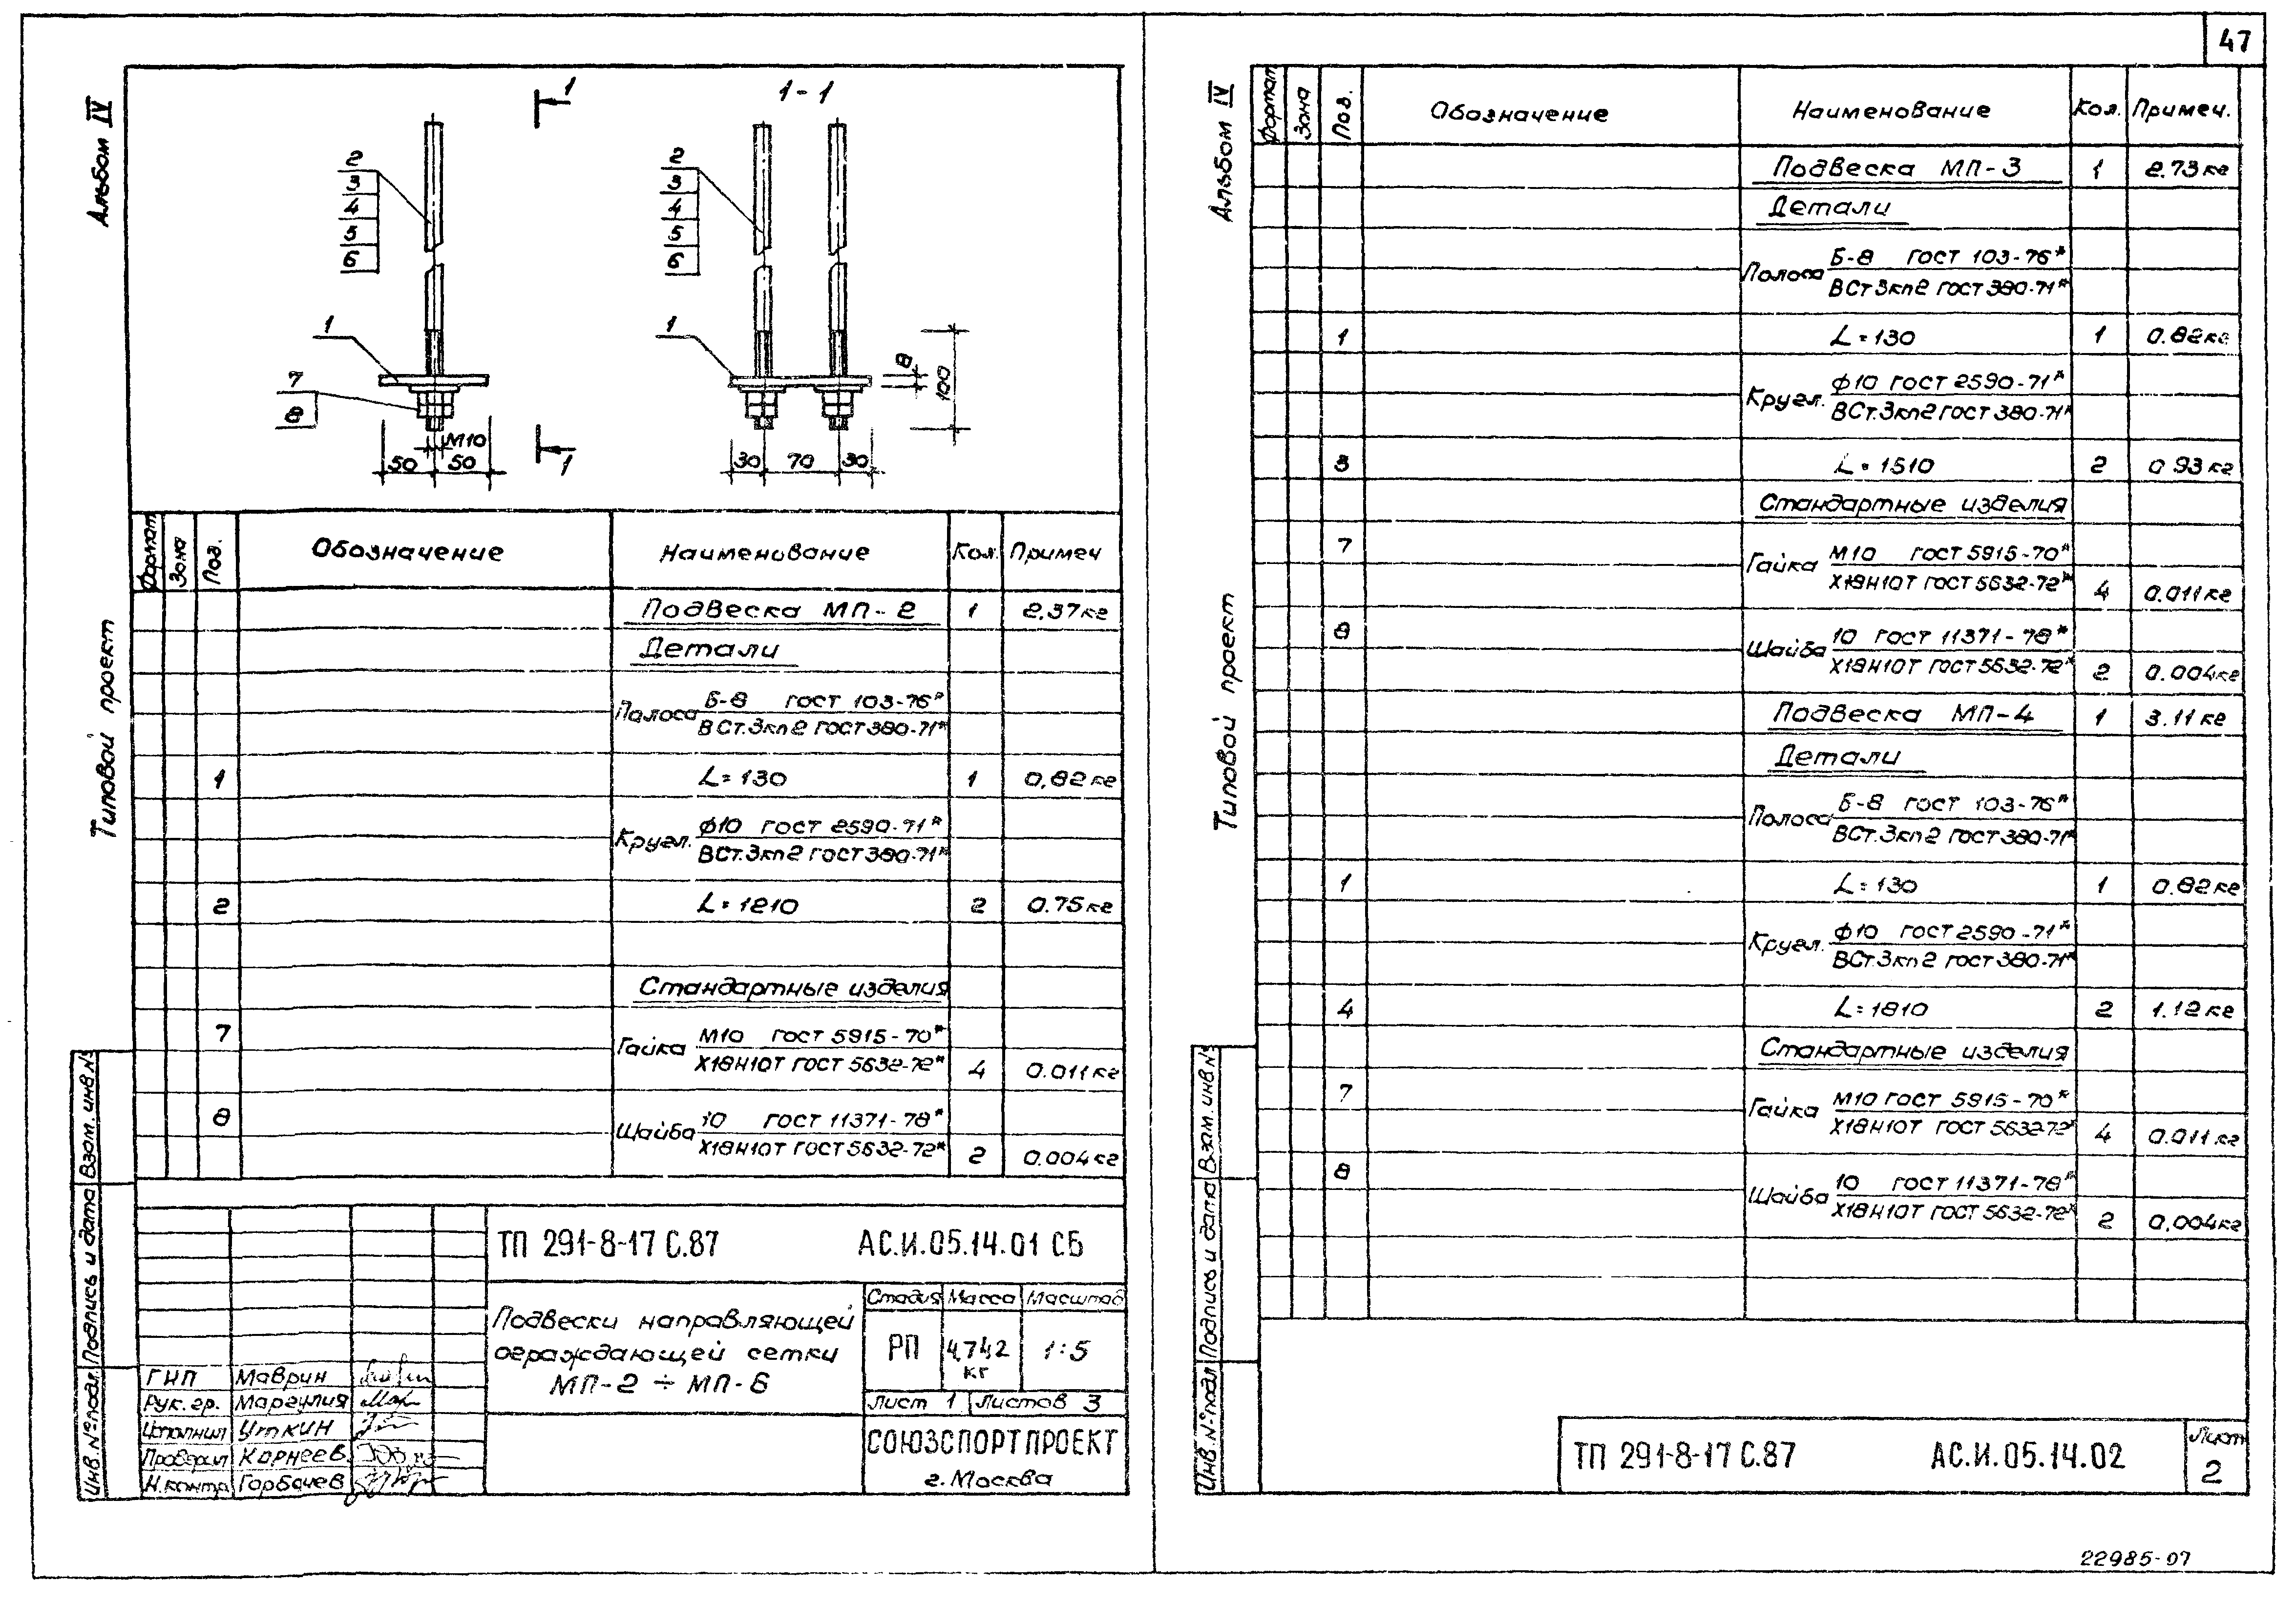 47
Альбом IV
Типовой проект
1
1-1
2
3
4
5
6
1
7
8
М10
50 50
1
2
3
4
5
6
1
8
100
30 70 30
Формат Зона Поз. Обозначение Наименование Кол. Примеч
Подвеска МП-2 1 2,37кг
Детали
Полоса Б-8 ГОСТ 103-76*
ВСт.3кп2 ГОСТ 380-71*
1 L=130 1 0,82кг
Кругл. ф10 ГОСТ 2590-71*
ВСт.3кп2 ГОСТ 380-71*
2 L=1210 2 0.75кг
Стандартные изделия
7 Гайка М10 ГОСТ 5915-70*
Х18Н10Т ГОСТ 5632-72* 4 0.011кг
8 Шайба 10 ГОСТ 11371-78*
Х18Н10Т ГОСТ 5632-72* 2 0.004кг
ТП 291-8-17 С.87 АС.И.05.14.01 СБ
Подвески направляющей
ограждающей сетки
МП-2 ÷ МП-6
Стадия Масса Масштаб
РП 4,742 кг 1:5
Лист 1 Листов 3
СОЮЗСПОРТПРОЕКТ
г.Москва
ГИП Маврин
Рук. гр. Маргулия
Исполнил Уткин
Проверил Корнеев
Н.контр Горбачев
Инв. №подл. Подпись и дата Взам. инв №
Альбом IV
Типовой проект
Формат Зона Поз. Обозначение Наименование Кол. Примеч.
Подвеска МП-3 1 2.73кг
Детали
Полоса Б-8 ГОСТ 103-76*
ВСт3кп2 ГОСТ 380-71*
1 L=130 1 0.82кг
Кругл. ф10 ГОСТ 2590-71*
ВСт.3кп2 ГОСТ 380-71*
3 L=1510 2 0.93кг
Стандартные изделия
7 Гайка М10 ГОСТ 5915-70*
Х18Н10Т ГОСТ 5632-72* 4 0.011кг
8 Шайба 10 ГОСТ 11371-78*
Х18Н10Т ГОСТ 5632-72* 2 0.004кг
Подвеска МП-4 1 3.11кг
Детали
Полоса Б-8 ГОСТ 103-76*
ВСт.3кп2 ГОСТ 380-71*
1 L=130 1 0.82кг
Кругл. ф10 ГОСТ 2590-71*
ВСт.3кп2 ГОСТ 380-71*
4 L=1810 2 1.12кг
Стандартные изделия
7 Гайка М10 ГОСТ 5915-70*
Х18Н10Т ГОСТ 5632-72* 4 0.011кг
8 Шайба 10 ГОСТ 11371-78*
Х18Н10Т ГОСТ 5632-72* 2 0,004кг
Инв. №подл Подпись и дата Взам. инв №
ТП 291-8-17 С.87 АС.И.05.14.02 Лист 2
22985-07